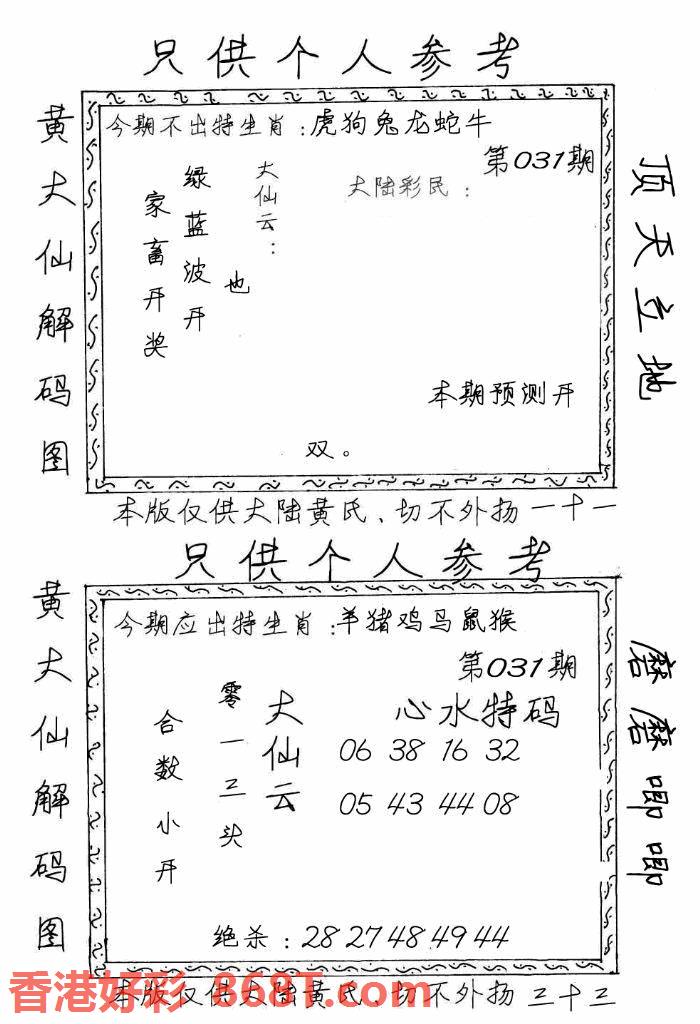 只供个人参考
黄大仙解码图
今期不出特生肖：虎狗兔龙蛇牛
第031期
大陆彩民：
大仙云：
绿蓝波开
也
家畜开奖
本期预测开
双。
顶天立地
本版仅供大陆黄氏、切不外扬一十一
只供个人参考
黄大仙解码图
今期应出特生肖：羊猪鸡马鼠猴
第031期
心水特码
大仙云
零一三头
合数小开
06 38 16 32
05 43 44 08
绝杀：28 27 48 49 44
磨磨唧唧
本版仅供大陆黄氏、切不外扬三十三
香港好彩 868T.com